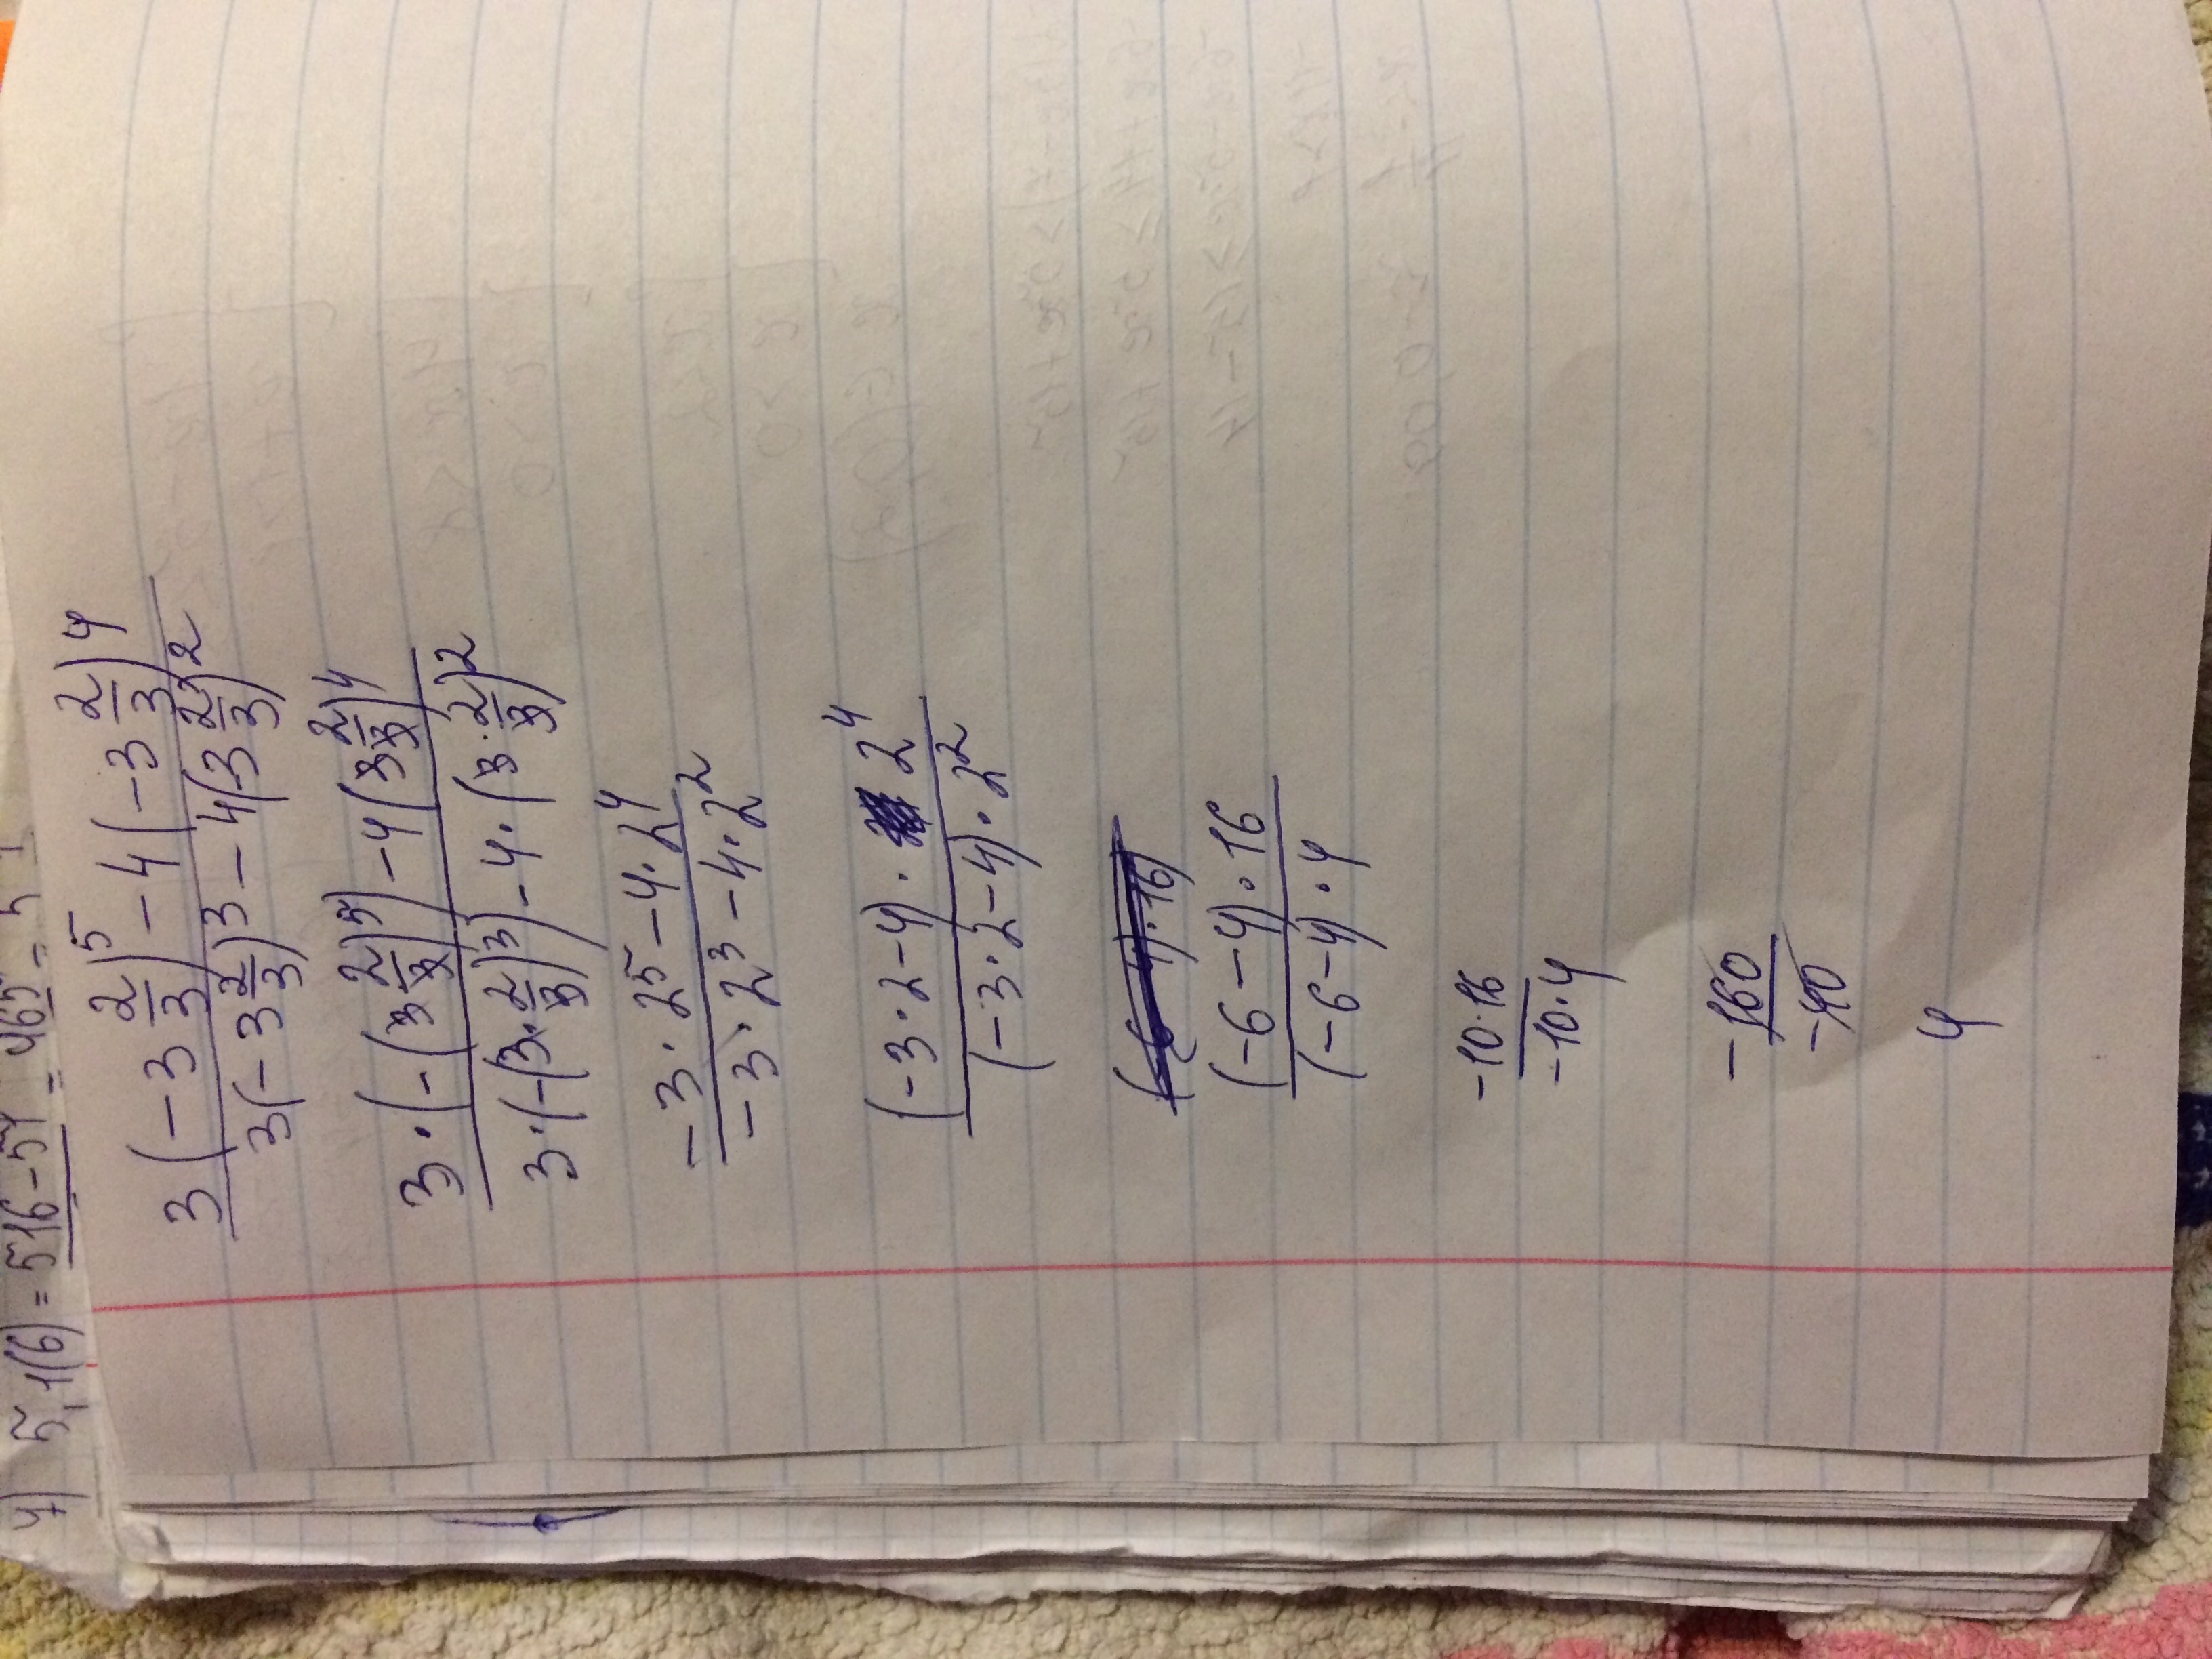 4) 5,1(6) = 516-51 = 465 = 5 1
3(-3 2/3)^5 - 4(-3 2/3)^4
3(-3 2/3)^3 - 4(-3 2/3)^2
3·(-(3 2/3)^5) - 4(3 2/3)^4
3·(-(3·2/3)^3) - 4·(3·2/3)^2
-3·2^5 - 4·2^4
-3·2^3 - 4·2^2
(-3·2-4)·2^4
(-3·2-4)·2^2
(-6-4)·16
(-6-4)·4
-10·16
-10·4
-160
-40
4